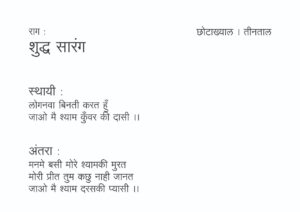 राग :
छोटाख्याल । तीनताल
शुद्ध सारंग
स्थायी :
लोगनवा बिनती करत हुँ
जाओ मै श्याम कुँवर की दासी ।।
अंतरा :
मनमे बसी मोरे श्यामकी मुरत
मोरी प्रीत तुम कछु नाही जानत
जाओ मै श्याम दरसकी प्यासी ।।